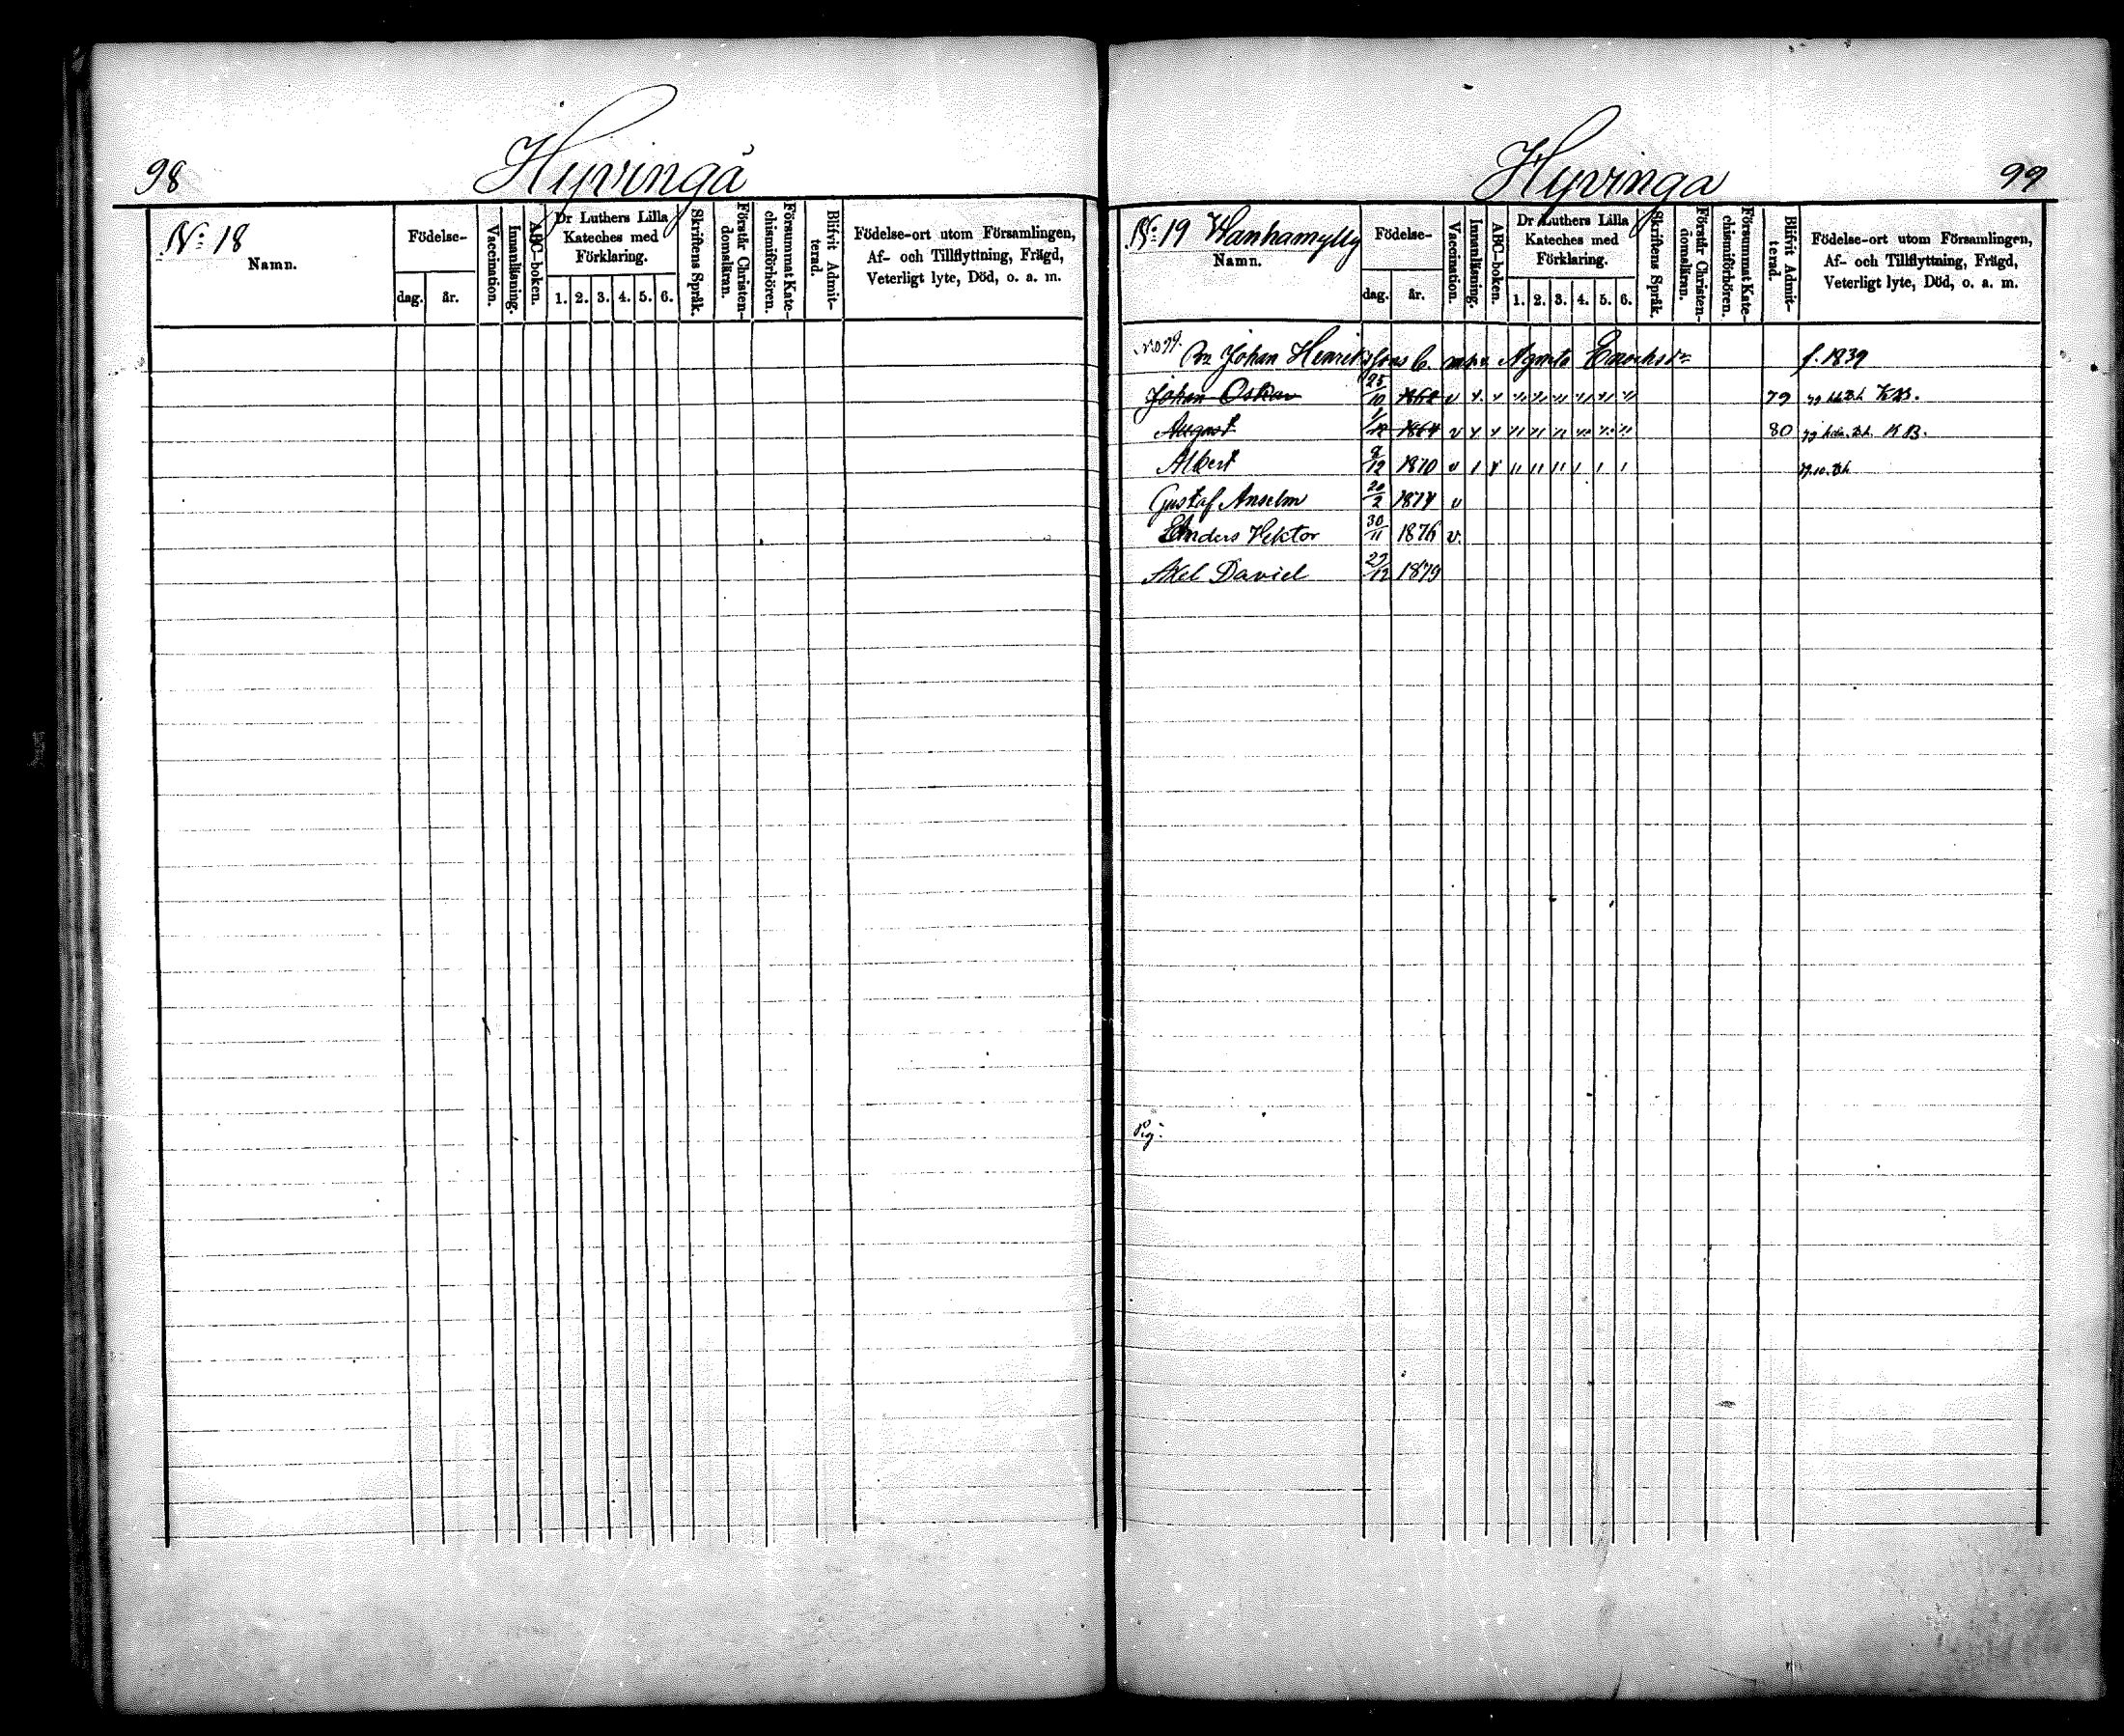 98
Hyvingå
Nº 18
Namn.
Födelse-
dag.
år.
Vaccination.
Innanläsning.
ABC-boken.
Dr Luthers Lilla
Kateches med
Förklaring.
1. 2. 3. 4. 5. 6.
Skriftens Språk.
Förstår Christen-
domsläran.
Försummat Kate-
chismiförhören.
Blifvit Admit-
terad.
Födelse-ort utom Församlingen,
Af- och Tillflyttning, Frägd,
Veterligt lyte, Död, o. a. m.
Hyvinga
99
Nº 19 Wanhamylly
Namn.
Födelse-
dag.
år.
Vaccination.
Innanläsning.
ABC-boken.
Dr Luthers Lilla
Kateches med
Förklaring.
1. 2. 3. 4. 5. 6.
Skriftens Språk.
Förstår Christen-
domsläran.
Försummat Kate-
chismiförhören.
Blifvit Admit-
terad.
Födelse-ort utom Församlingen,
Af- och Tillflyttning, Frägd,
Veterligt lyte, Död, o. a. m.
Johan Henrikssons Agneta Enochsdr f. 1839
Johan Oskar 25/10 1862 v 79 KB.
August 1/12 1864 v 80 KB.
Albert 9/12 1870 v
Gustaf Anselm 20/2 1874 v
Anders Hektor 30/11 1876 v.
Axel David 29/12 1879
Pig.